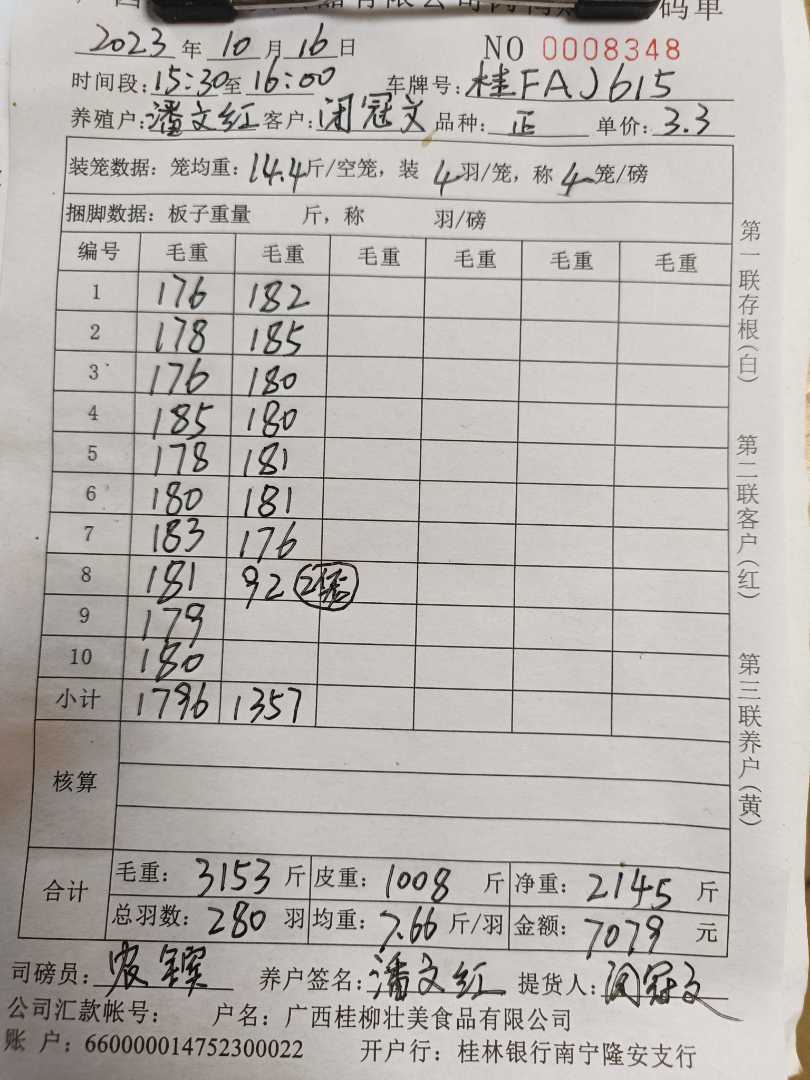 码单
2023年10月16日 NO 0008348
时间段:15:30至16:00 车牌号:桂FAJ615
养殖户:潘文红 客户:闭冠文 品种:正 单价:3.3
装笼数据:笼均重:14.4斤/空笼,装4羽/笼,称4笼/磅
捆脚数据:板子重量 斤,称 羽/磅
编号 毛重 毛重 毛重 毛重 毛重 毛重
1 176 182
2 178 185
3 176 180
4 185 180
5 178 181
6 180 181
7 183 176
8 181 92 2笼
9 179
10 180
小计 1796 1357
核算
合计 毛重:3153斤 皮重:1008斤 净重:2145斤
总羽数:280羽 均重:7.66斤/羽 金额:7079元
司磅员:农 养户签名:潘文红 提货人:闭冠文
公司汇款帐号: 户名:广西桂柳壮美食品有限公司
账户:660000014752300022 开户行:桂林银行南宁隆安支行
第一联存根(白) 第二联客户(红) 第三联养户(黄)